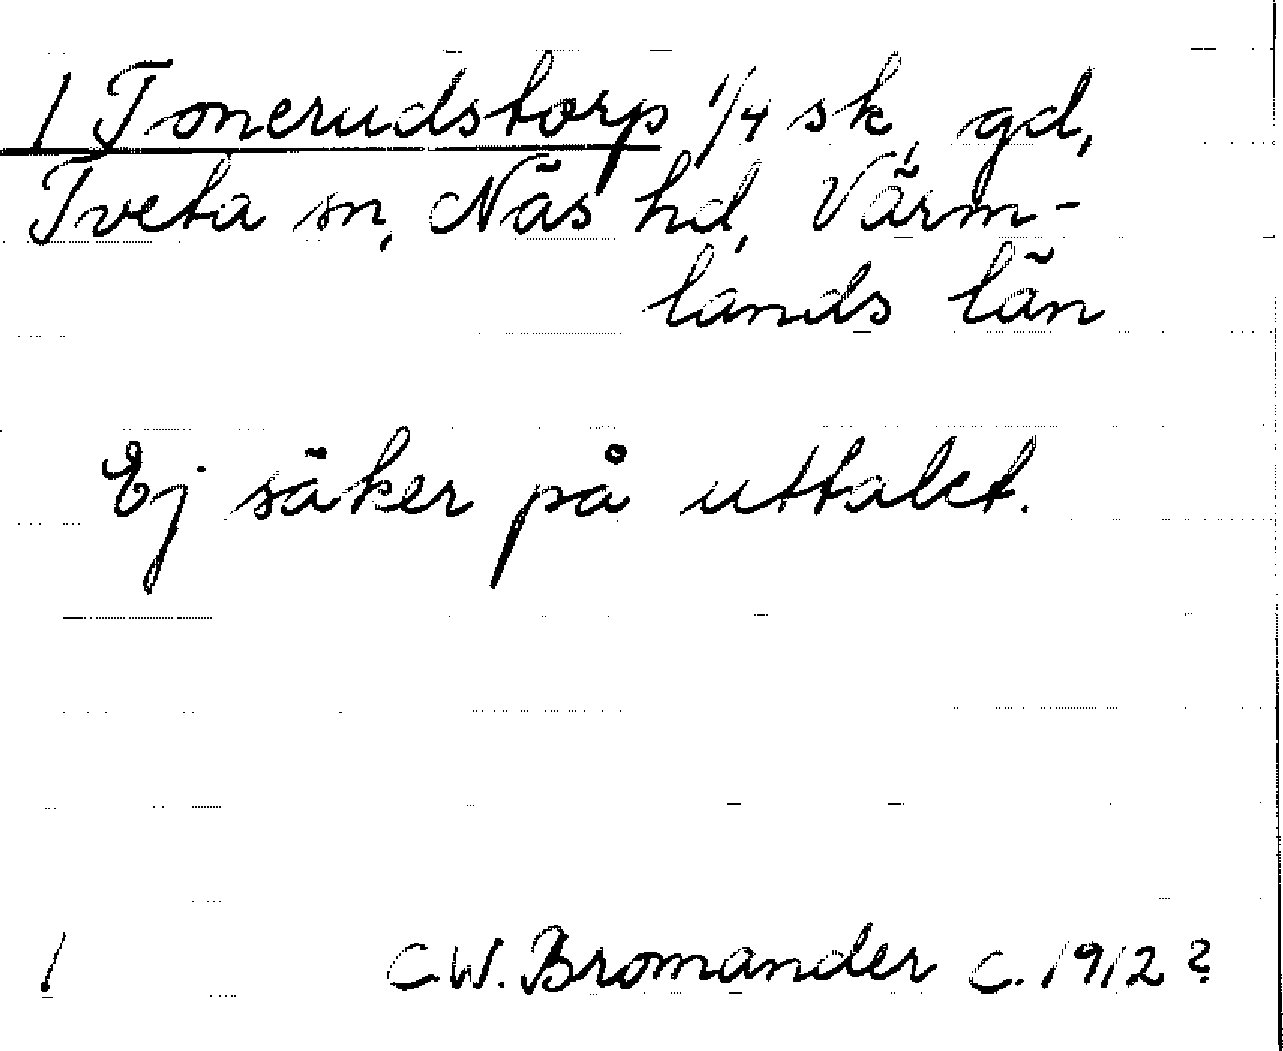 1 Tonerudstorp 1/4 sk, gd,
Tveta sn, Näs hd, Värm-
lands län
Ej säker på uttalet.
1 C.W. Bromander c. 1912?